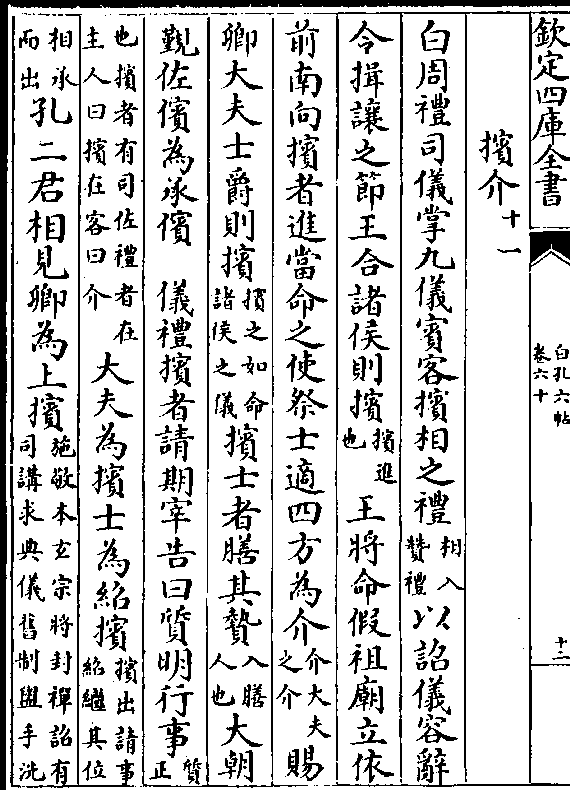 欽定四庫全書
白孔六帖
卷六十
十二
擯介十一
白周禮司儀掌九儀賓客擯相之禮相入贊禮以詔儀容辭
令揖讓之節王合諸侯則擯擯進也王將命假祖廟立依
前南向擯者進當命之使祭士適四方為介介大夫之介賜
卿大夫士爵則擯擯之如命諸侯之儀擯士者膳其贄入膳人也大朝
覲佐儐為承儐　儀禮擯者請期宰告曰質明行事質正
也擯者有司佐禮者在主人曰擯在客曰介大夫為擯士為紹擯擯出請事紹繼其位
相承而出孔二君相見卿為上擯施敬本玄宗將封禪詔有司講求典儀舊制盥手洗